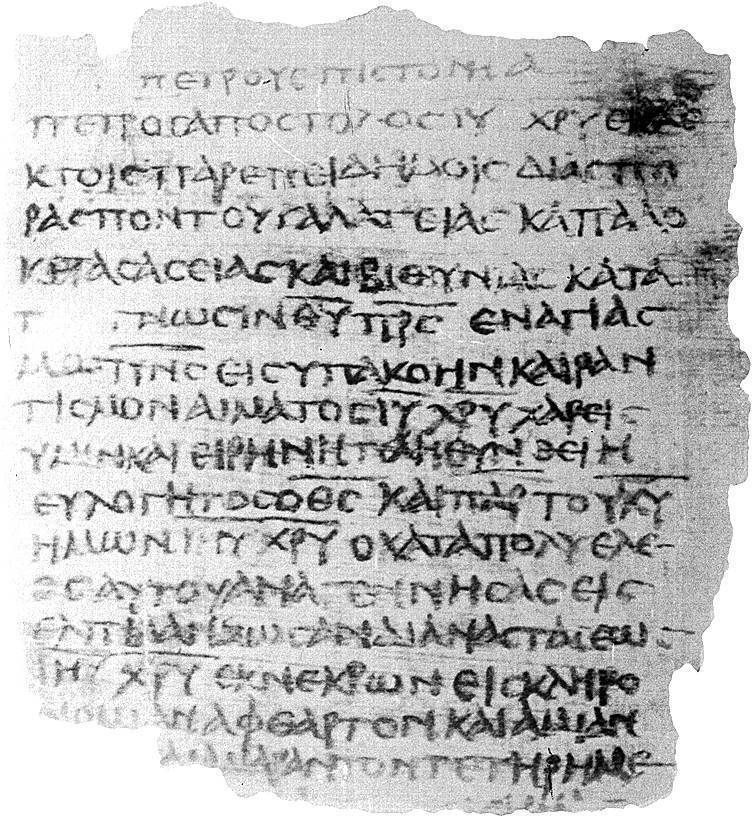 ΠΕΤΡΟΥ ΕΠΙϹΤΟΛΗ Α
ΠΕΤΡΟϹ ΑΠΟϹΤΟΛΟϹ ΙΗΥ ΧΡΥ ΕΚΛΕ
ΚΤΟΙϹ ΠΑΡΕΠΕΙΔΗΜΟΙϹ ΔΙΑϹΠΟ
ΡΑϹ ΠΟΝΤΟΥ ΓΑΛΑΤΕΙΑϹ ΚΑΠΠΑΔΟ
ΑϹΕΙΑϹ ΚΑΙ ΒΙΘΥΝΙΑϹ ΚΑΤΑ
ΓΝΩϹΙΝ ΘΥ ΠΡϹ ΕΝ ΑΓΙΑϹ
ΜΩ ΠΝϹ ΕΙϹ ΥΠΑΚΟΗΝ ΚΑΙ ΡΑΝ
ΤΙϹΜΟΝ ΑΙΜΑΤΟϹ ΙΥ ΧΡΥ ΧΑΡΕΙϹ
ΥΜΙΝ ΚΑΙ ΕΙΡΗΝΗ ΠΛΗΘΥΝΘΕΙΗ
ΕΥΛΟΓΗΤΟϹ Ο ΘϹ ΚΑΙ ΠΑΡ ΤΟΥ ΚΥ
ΗΜΩΝ ΙΗΥ ΧΡΥ Ο ΚΑΤΑ ΠΟΛΥ ΕΛΕ
ΟϹ ΑΥΤΟΥ ΑΝΑΓΕΝΝΗϹΑϹ ΕΙϹ
ΖΩϹΑΝ ΔΙ ΑΝΑϹΤΑϹΕΩϹ
ΙΗΥ ΧΡΥ ΕΚ ΝΕΚΡΩΝ ΕΙϹ ΚΛΗΡΟ
ΝΟΜΙΑΝ ΑΦΘΑΡΤΟΝ ΚΑΙ ΑΜΙΑΝ
ΑΜΑΡΑΝΤΟΝ ΤΕΤΗΡΗΜΕ